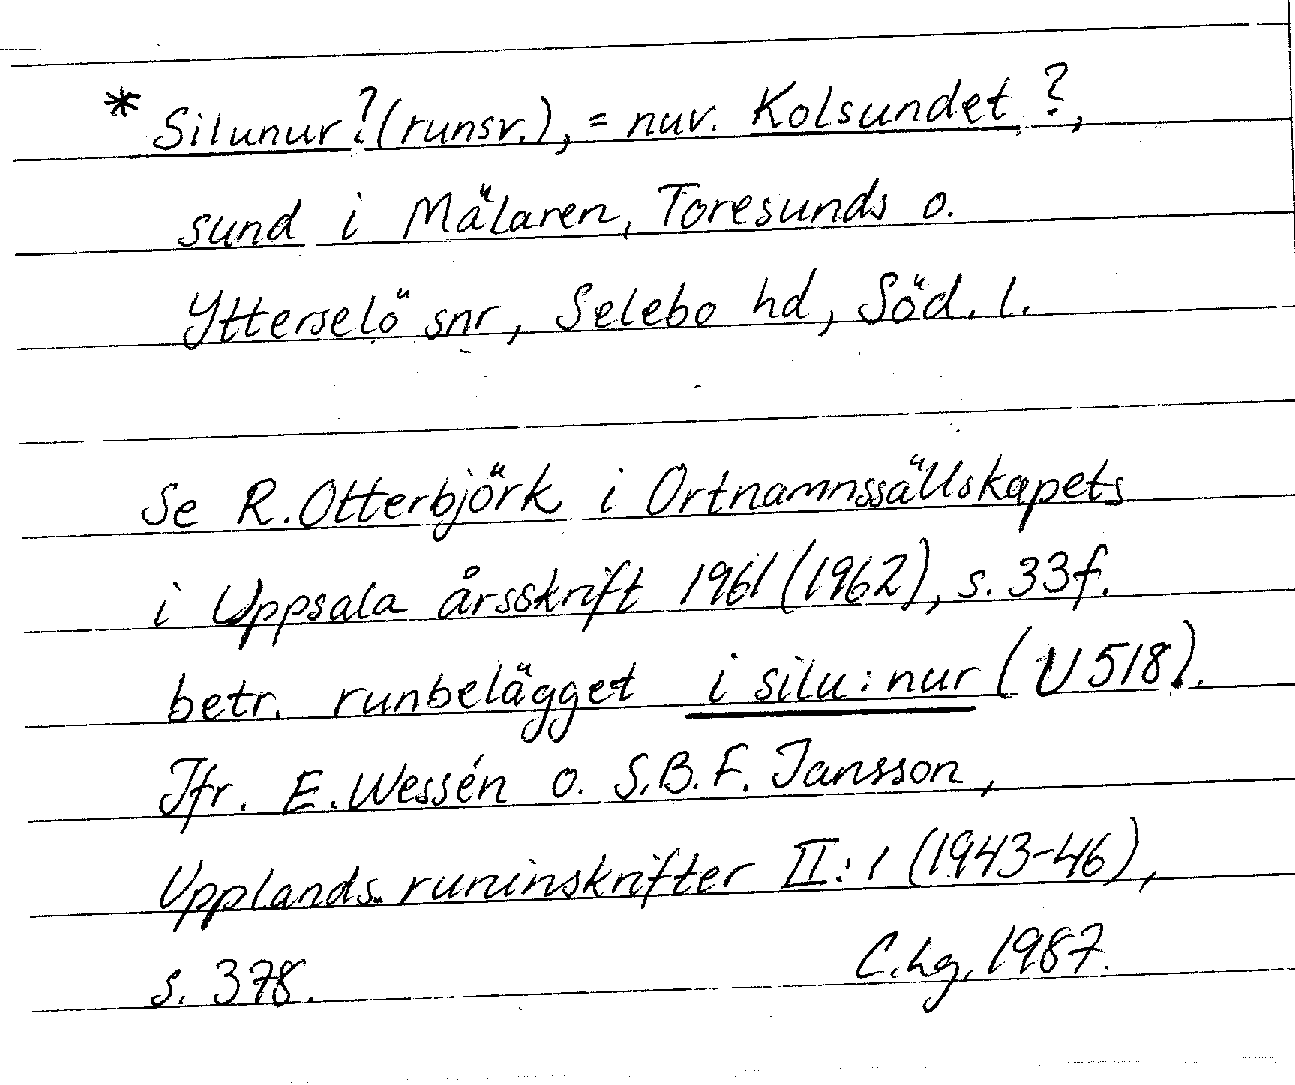 * Silunur? (runsv.), = nuv. Kolsundet?,
sund i Mälaren, Toresunds o.
Ytterselö snr, Selebo hd, Söd. l.
Se R. Otterbjörk i Ortnamnssällskapets
i Uppsala årsskrift 1961 (1962), s. 33f.
betr. runbelägget i silu:nur (U 518).
Jfr. E. Wessén o. S.B.F. Jansson,
Upplands runinskrifter II:1 (1943-46),
s. 378. C.hg. 1987.